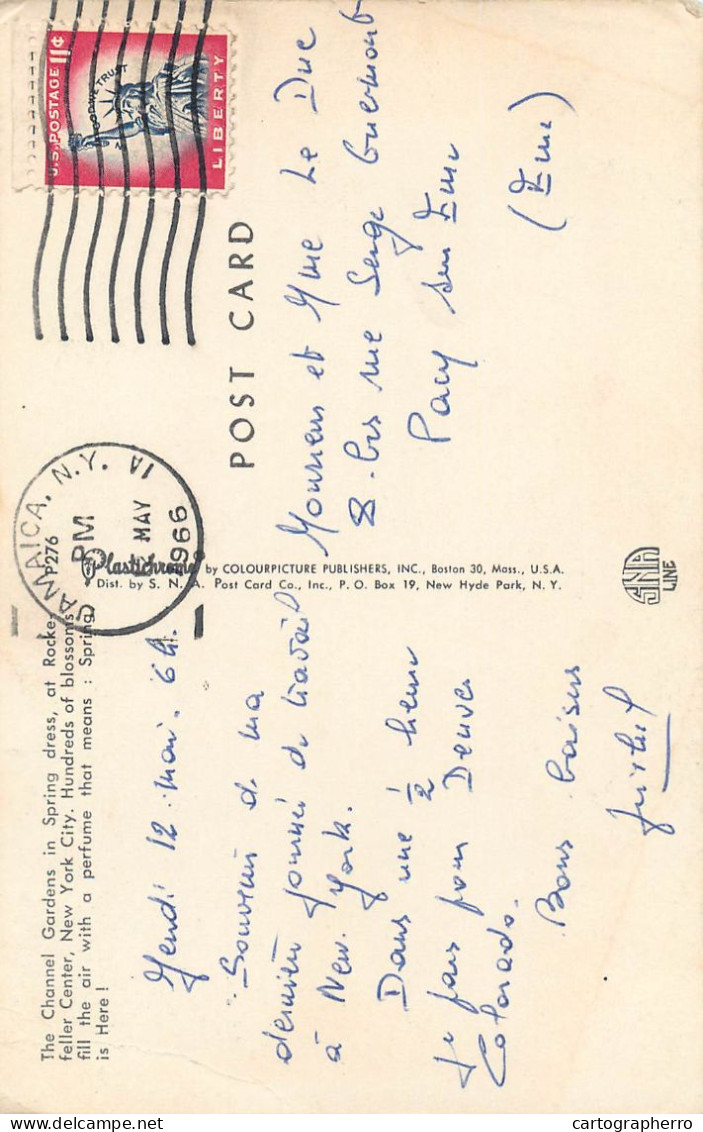 The Channel Gardens in Spring dress, at Rocke-
feller Center, New York City. Hundreds of blossoms
fill the air with a perfume that means : Spring
is Here !
P276
Jeudi 12 mai. 6 h.
Souvenir de ma
dernière journée de travail
à New-York.
Dans une 1/2 heure
je pars pour Denver
Colorado.
Bons baisers
Plastichrome by COLOURPICTURE PUBLISHERS, INC., Boston 30, Mass., U.S.A.
Dist. by S. N. A. Post Card Co., Inc., P. O. Box 19, New Hyde Park, N. Y.
SNA
LINE
JAMAICA, N.Y. 1A
PM
MAY
1966
U.S. POSTAGE 11¢
IN GOD WE TRUST
LIBERTY
POST CARD
Monsieur et Mme Le Duc
8. bis rue Serge
Pacy sur Eure
(Eure)
cartographerro